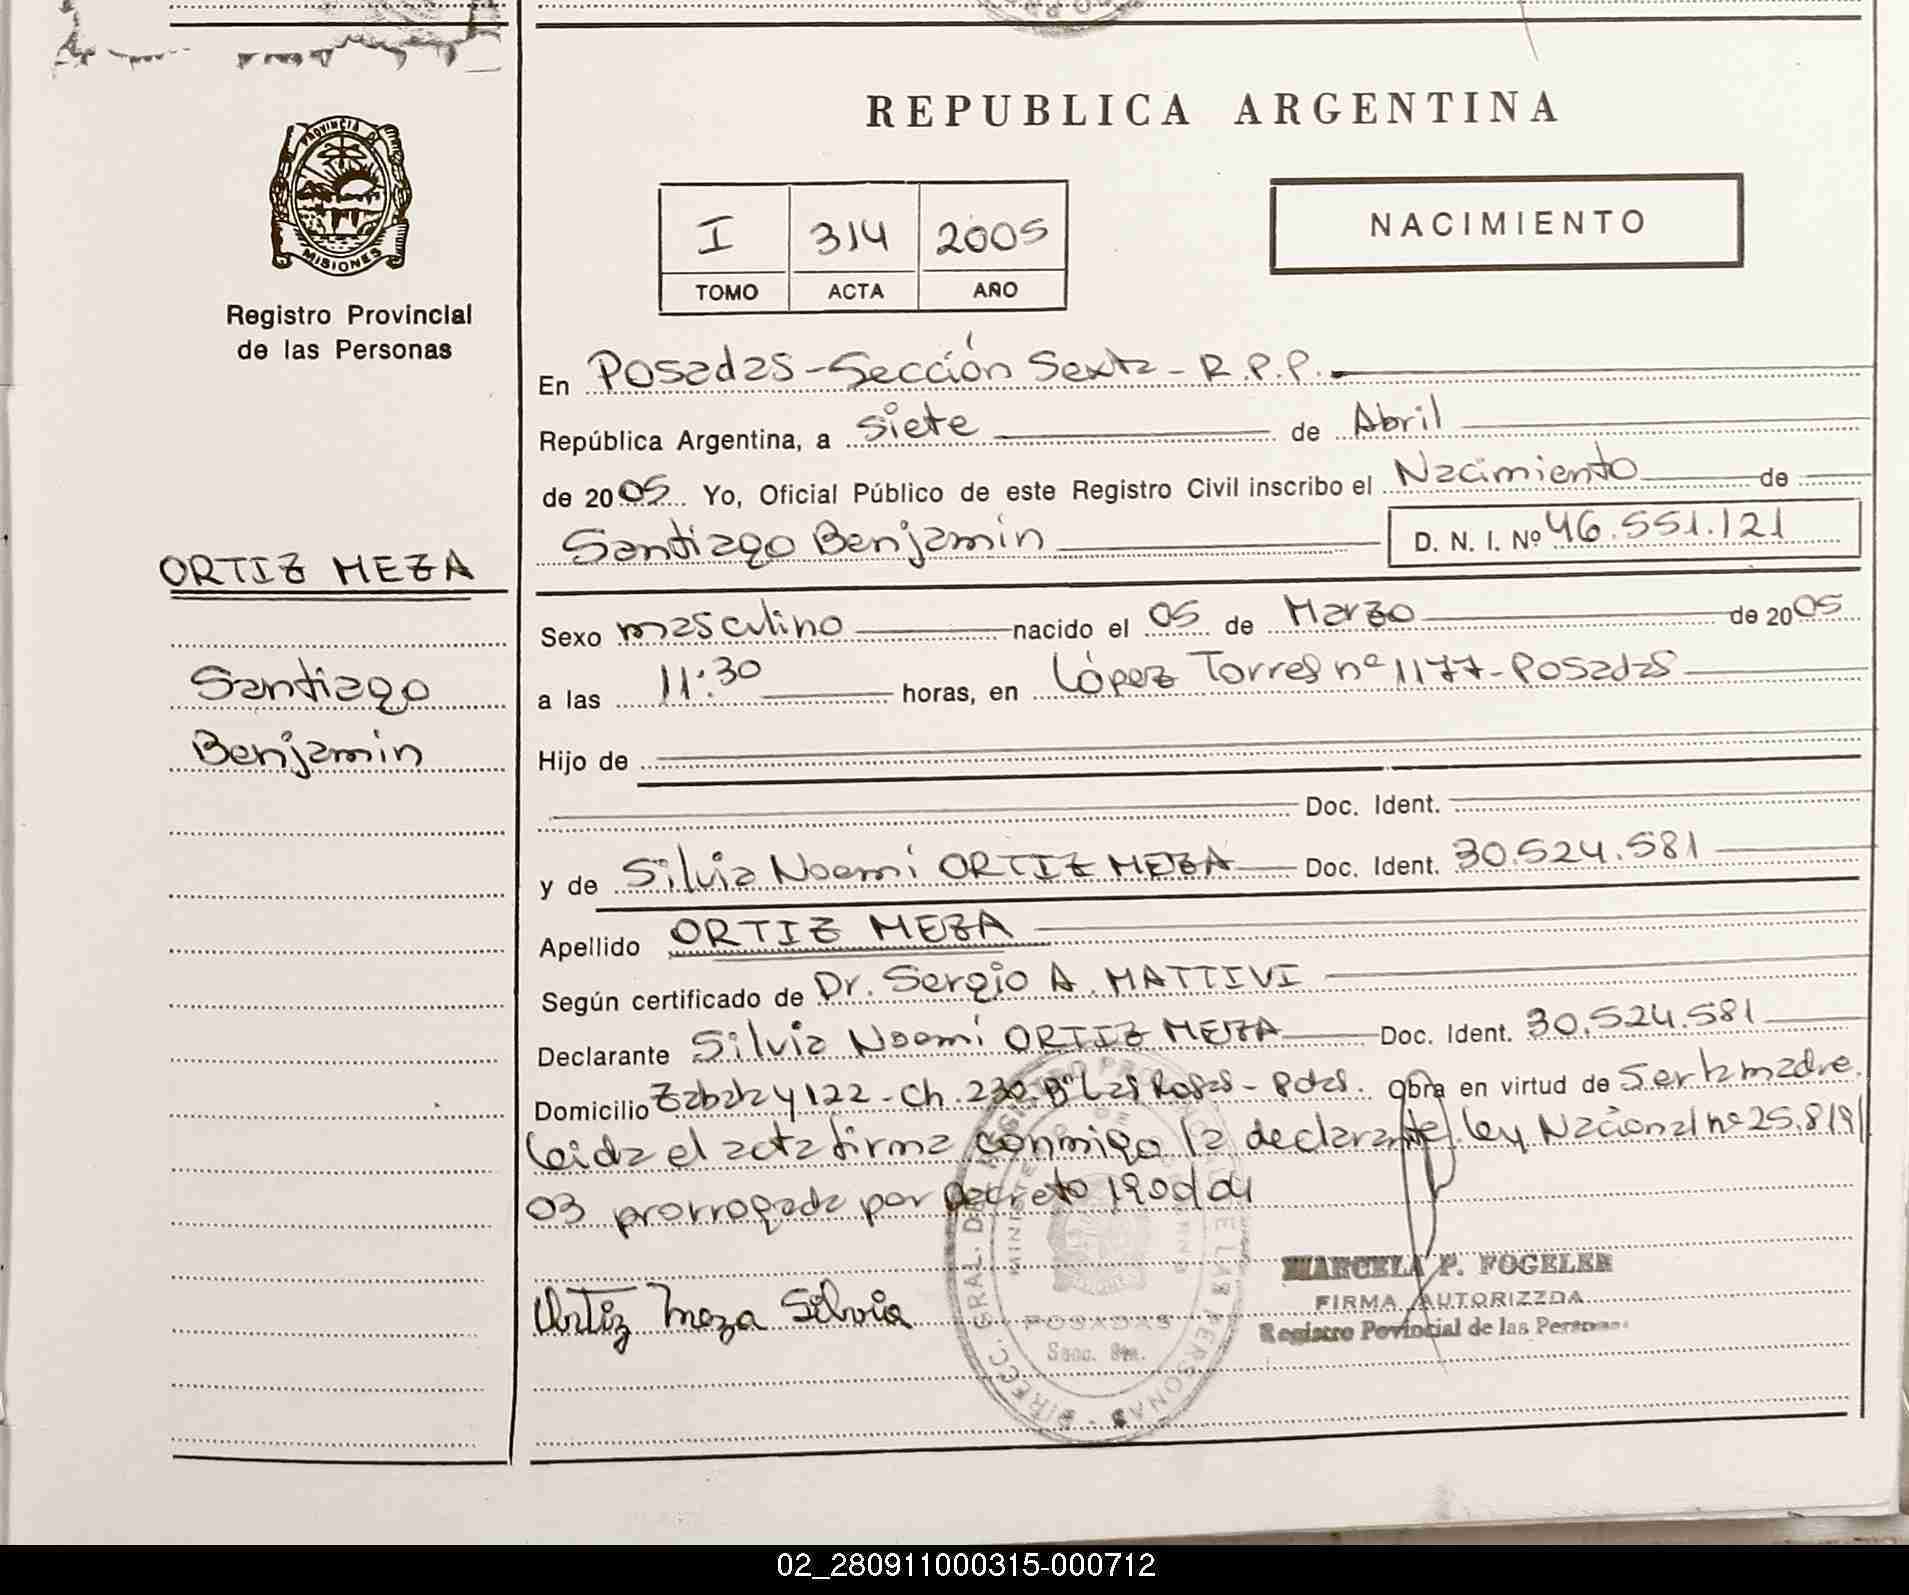 REPUBLICA ARGENTINA
PROVINCIA DE
MISIONES
Registro Provincial
de las Personas
I 314 2005
TOMO ACTA AÑO
NACIMIENTO
En Posadas - Sección Sexta - R.P.P.
República Argentina, a siete de Abril
de 2005 Yo, Oficial Público de este Registro Civil inscribo el Nacimiento de
Santiago Benjamin D. N. I. Nº 46.551.121
ORTIZ MEZA
Santiago
Benjamin
Sexo masculino nacido el 05 de Marzo de 2005
a las 11:30 horas, en López Torres nº 1177 - Posadas
Hijo de
Doc. Ident.
y de Silvia Noemí ORTIZ MEZA Doc. Ident. 30.524.581
Apellido ORTIZ MEZA
Según certificado de Dr. Sergio A. MATTIVI
Declarante Silvia Noemí ORTIZ MEZA Doc. Ident. 30.524.581
Domicilio Zabala y 122 - Ch. 232 Bº Las Rosas - Pdas. Obra en virtud de Ser la madre.
Leida el acta firma conmigo la declarante. Ley Nacional nº 25.819/
03 prorrogada por Decreto 190d/04
Ortiz Meza Silvia
MARCELA P. FOGELER
FIRMA AUTORIZZDA
Registro Povincial de las Personas
DIRECC. GRAL. DEL REGISTRO PROVINCIAL DE LAS PERSONAS
POSADAS
Secc. 6ta.
02_280911000315-000712